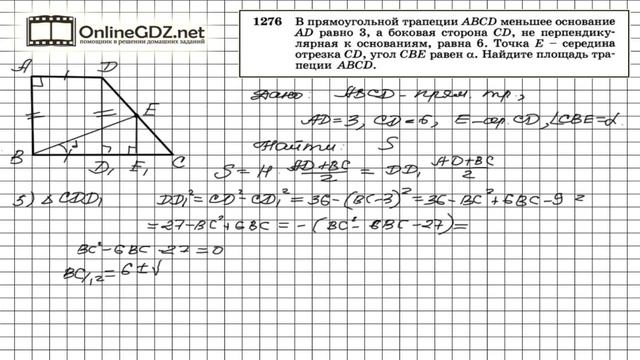 OnlineGDZ.com
помощник в решении домашних заданий
1276 В прямоугольной трапеции ABCD меньшее основание
AD равно 3, а боковая сторона CD, не перпендику-
лярная к основаниям, равна 6. Точка E – середина
отрезка CD, угол CBE равен α. Найдите площадь тра-
пеции ABCD.
A D
E
B D₁ E₁ C
Дано: ABCD – прям. тр.,
AD=3, CD=6, E – сер. CD, ∠CBE=α.
Найти: S
S = H · (AD+BC)/2 = DD₁ (AD+BC)/2
3) △CDD₁ DD₁² = CD² - CD₁² = 36 - (BC-3)² = 36 - BC² + 6BC - 9 =
= 27 - BC² + 6BC = -(BC² - 6BC - 27) =
BC² - 6BC - 27 = 0
BC₁,₂ = 6 ± √